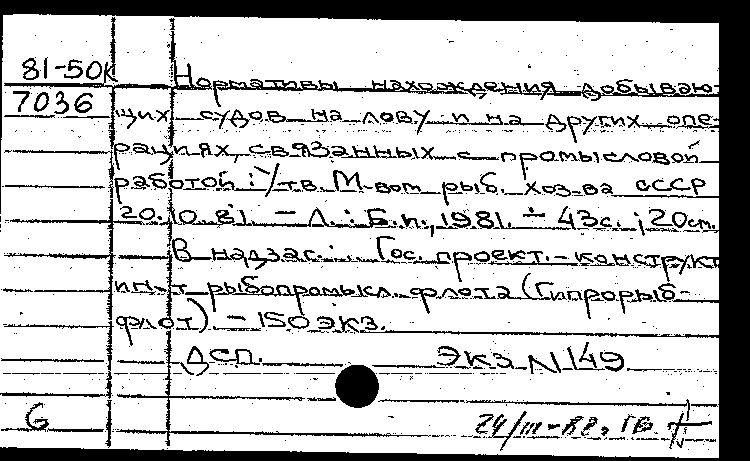 81-50К Нормативы нахождения добываю-
7036 щих судов на лову и на других опе-
рациях, связанных с промысловой
работой: Утв. М-вом рыб. хоз-ва СССР
20.10.81. - Л.: Б.и., 1981. - 43с.; 20см.
В надзаг.: Гос. проект.-конструкт
ин-т рыбопромысл. флота (Гипрорыб-
флот) - 150 экз.
ДСП. Экз N 149
G 24/III-88.